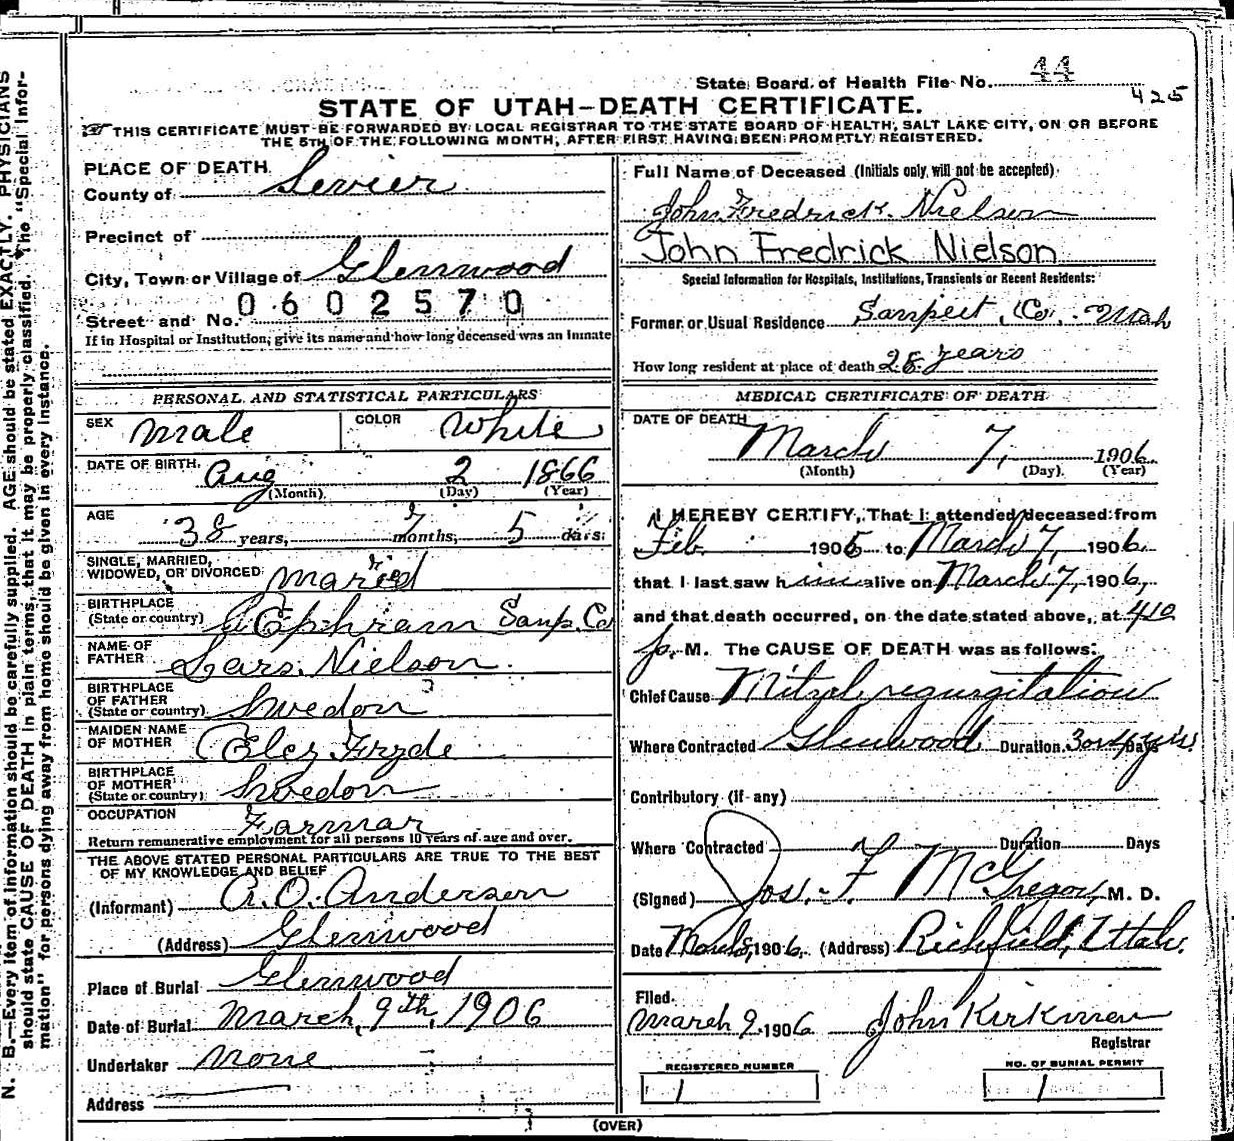 State Board of Health File No. 44
425
STATE OF UTAH—DEATH CERTIFICATE.
THIS CERTIFICATE MUST BE FORWARDED BY LOCAL REGISTRAR TO THE STATE BOARD OF HEALTH, SALT LAKE CITY, ON OR BEFORE
THE 5TH OF THE FOLLOWING MONTH, AFTER FIRST HAVING BEEN PROMPTLY REGISTERED.
N. B.—Every item of information should be carefully supplied. AGE should be stated EXACTLY. PHYSICIANS
should state CAUSE OF DEATH in plain terms, that it may be properly classified. The "Special Infor-
mation" for persons dying away from home should be given in every instance.
PLACE OF DEATH
County of Sevier
Precinct of
City, Town or Village of Glenwood
0602570
Street and No.
If in Hospital or Institution, give its name and how long deceased was an inmate
PERSONAL AND STATISTICAL PARTICULARS
SEX Male COLOR White
DATE OF BIRTH Aug 2 1866
(Month) (Day) (Year)
AGE 38 years, 7 months, 5 days
SINGLE, MARRIED,
WIDOWED, OR DIVORCED Maried
BIRTHPLACE
(State or country) Ephraim Sanp. Co
NAME OF
FATHER Lars. Nielson.
BIRTHPLACE
OF FATHER
(State or country) Swedon
MAIDEN NAME
OF MOTHER
BIRTHPLACE
OF MOTHER
(State or country) Swedon
OCCUPATION Farmar
Return remunerative employment for all persons 10 years of age and over.
THE ABOVE STATED PERSONAL PARTICULARS ARE TRUE TO THE BEST
OF MY KNOWLEDGE AND BELIEF
(Informant) A. O. Andersen
(Address) Glenwood
Place of Burial Glenwood
Date of Burial March 9th, 1906
Undertaker None
Address
Full Name of Deceased (Initials only will not be accepted)
John Fredrick. Nielson
John Fredrick Nielson
Special Information for Hospitals, Institutions, Transients or Recent Residents:
Former or Usual Residence Sanpeet, Co. Utah
How long resident at place of death 28 years
MEDICAL CERTIFICATE OF DEATH
DATE OF DEATH
March 7, 1906
(Month) (Day) (Year)
I HEREBY CERTIFY, That I attended deceased from
Feb. 1905 to March 7, 1906.
that I last saw him alive on March 7, 1906,
and that death occurred, on the date stated above, at 410
p. M. The CAUSE OF DEATH was as follows:
Chief Cause Mitral regurgitation
Where Contracted Glenwood Duration 3 or 4 yrs. Days
Contributory (if any)
Where Contracted Duration Days
(Signed) Jos. F. McGregor, M. D.
Date March 8, 1906. (Address) Richfield, Utah.
Filed.
March 9, 1906 John Kirkman
Registrar
REGISTERED NUMBER
1
NO. OF BURIAL PERMIT
1
(OVER)